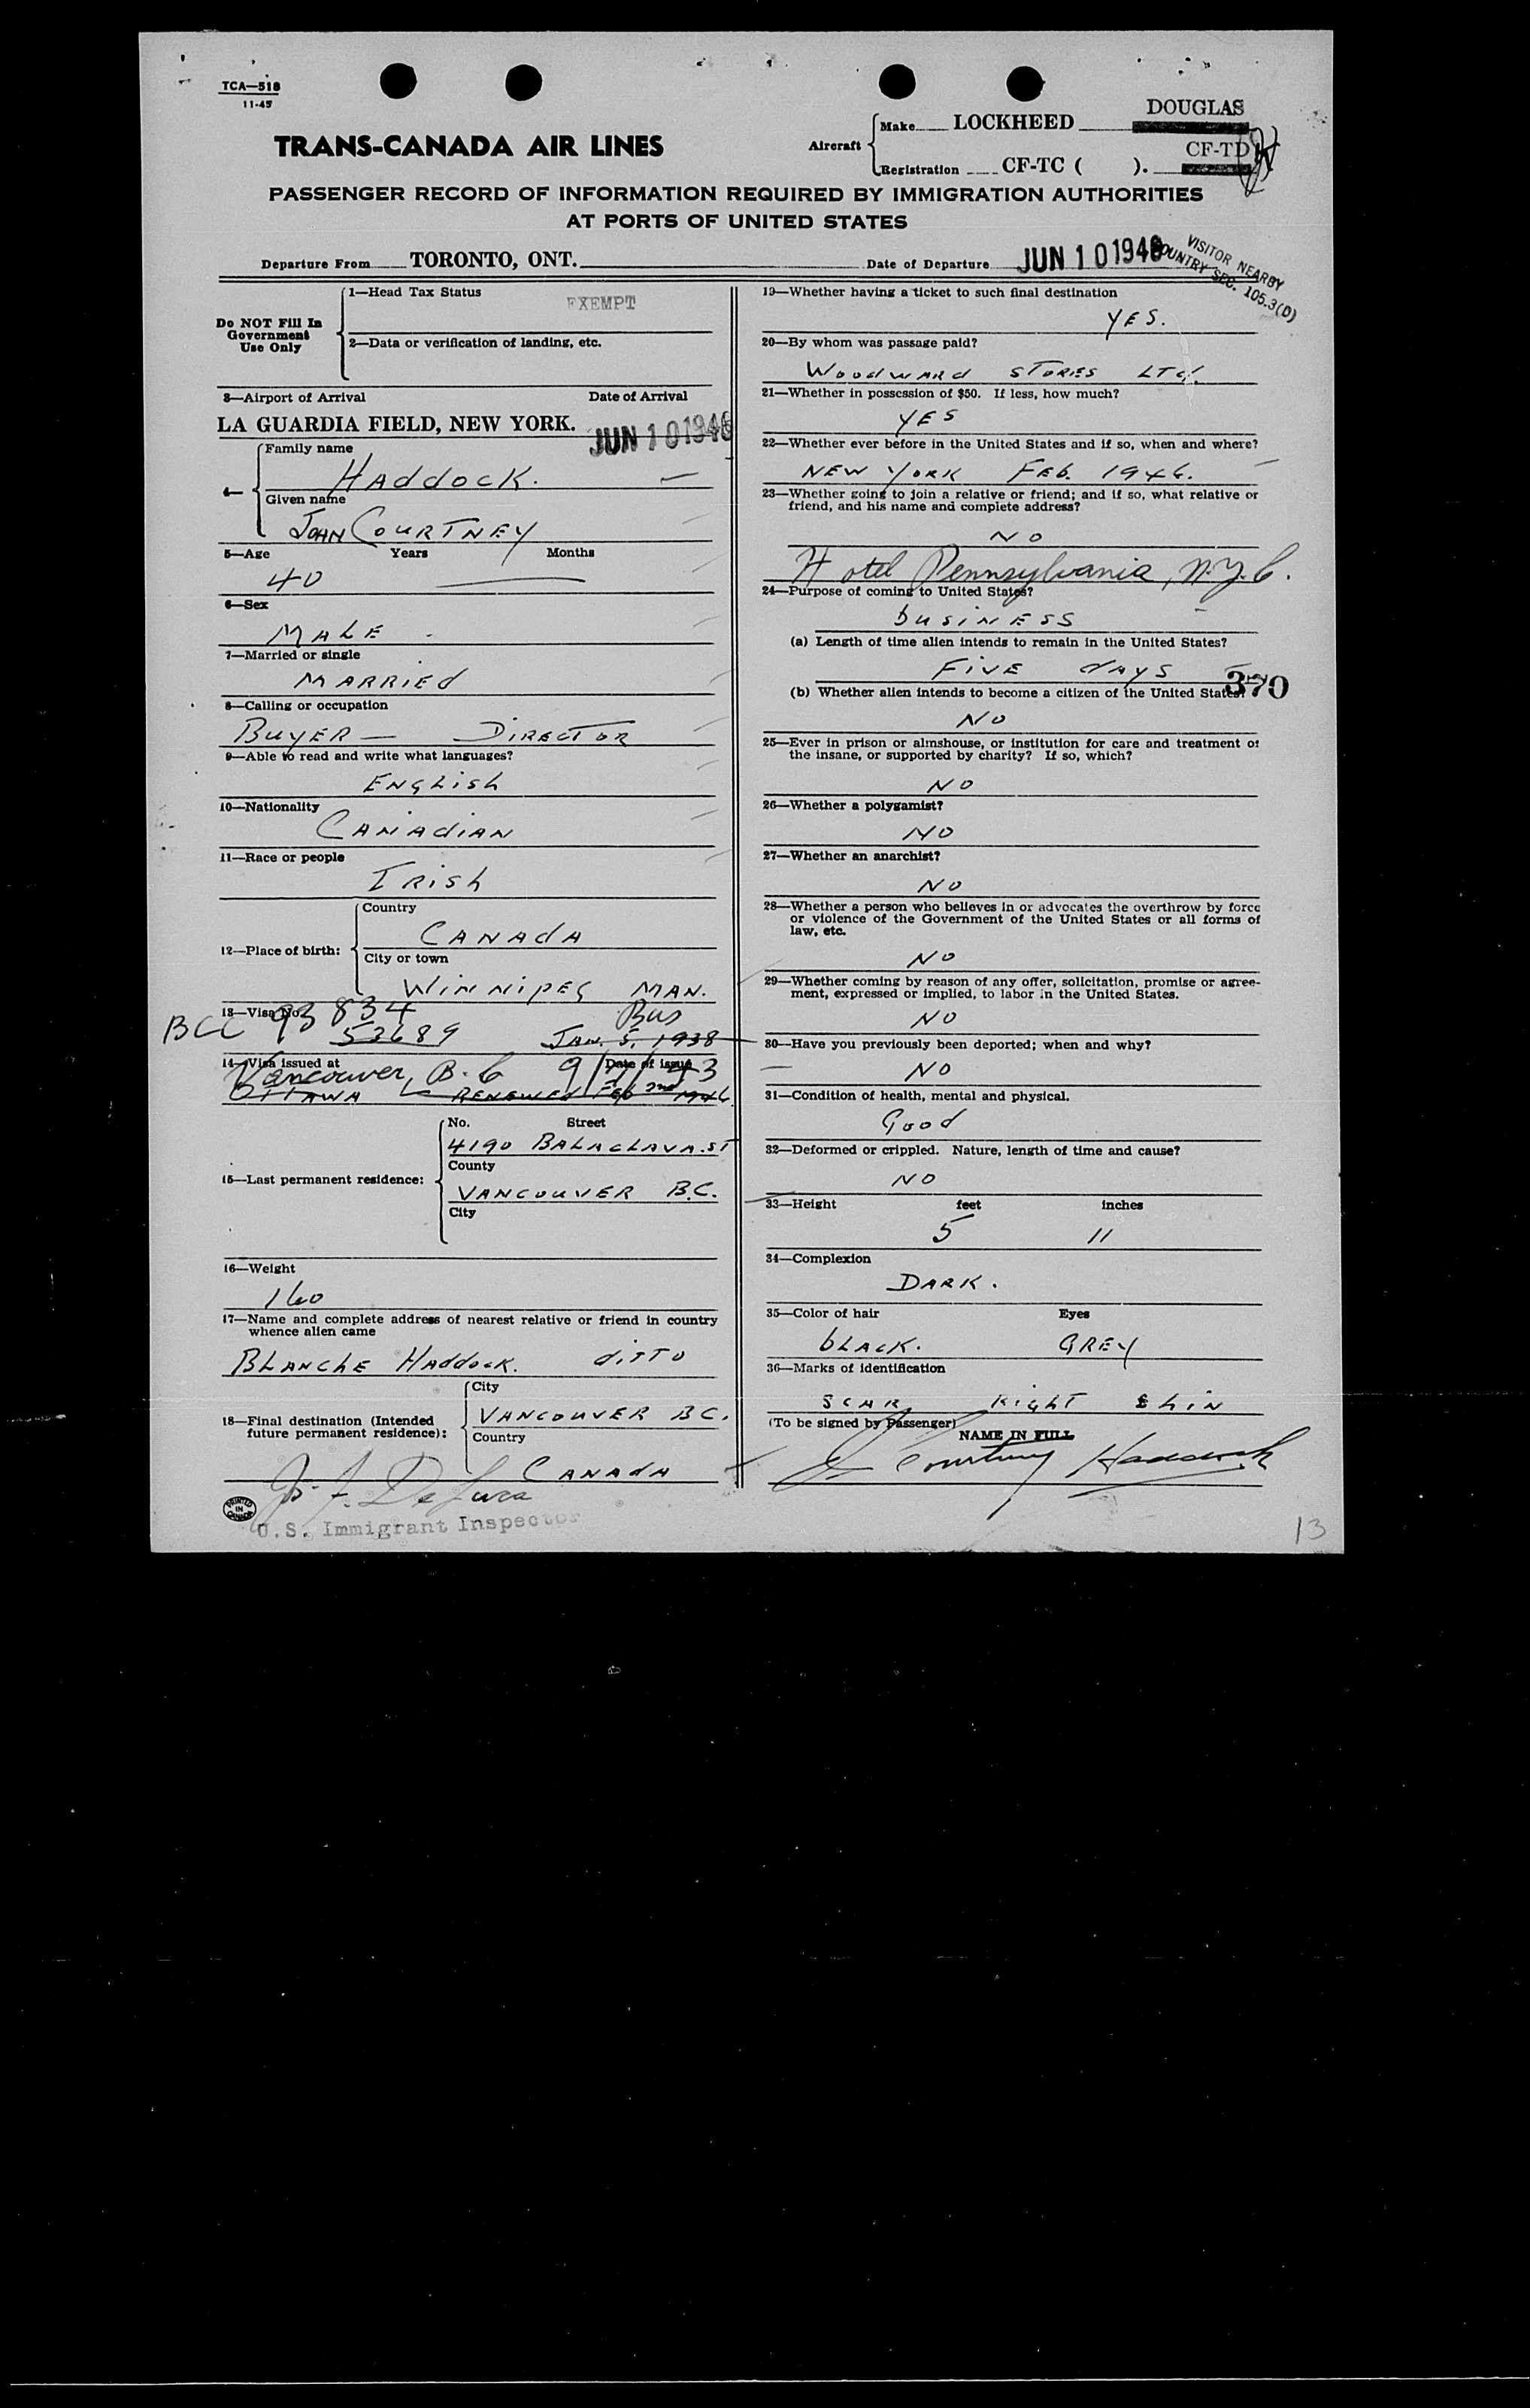 TCA—518
11-45
TRANS-CANADA AIR LINES
Aircraft
Make LOCKHEED
DOUGLAS
Registration CF-TC ( ).
CF-TD
PASSENGER RECORD OF INFORMATION REQUIRED BY IMMIGRATION AUTHORITIES
AT PORTS OF UNITED STATES
Departure From TORONTO, ONT.
Date of Departure JUN 10 1946
VISITOR NEARBY
COUNTRY SEC. 105.3(D)
Do NOT Fill In
Government
Use Only
1—Head Tax Status
EXEMPT
2—Data or verification of landing, etc.
3—Airport of Arrival Date of Arrival
LA GUARDIA FIELD, NEW YORK. JUN 10 1946
4—
Family name
HADDOCK.
Given name
JOHN COURTNEY
5—Age Years Months
40
6—Sex
MALE
7—Married or single
MARRIED
8—Calling or occupation
BUYER — DIRECTOR
9—Able to read and write what languages?
ENGLISH
10—Nationality
CANADIAN
11—Race or people
IRISH
12—Place of birth:
Country
CANADA
City or town
WINNIPEG MAN.
13—Visa No.
BCC 93834 Bus
53689 JAN. 5, 1938
14—Visa issued at Date of issue
Vancouver, B.C 9/7/43
OTTAWA RENEWED FEB 2nd 1946
15—Last permanent residence:
No. Street
4190 BALACLAVA.ST
County
VANCOUVER B.C.
City
16—Weight
160
17—Name and complete address of nearest relative or friend in country
whence alien came
BLANCHE HADDOCK. DITTO
18—Final destination (Intended
future permanent residence):
City
VANCOUVER BC.
Country
CANADA
U.S. Immigrant Inspector
PRINTED
IN
CANADA
19—Whether having a ticket to such final destination
YES.
20—By whom was passage paid?
WOODWARD STORES LTD.
21—Whether in possession of $50. If less, how much?
YES
22—Whether ever before in the United States and if so, when and where?
NEW YORK FEB. 1946.
23—Whether going to join a relative or friend; and if so, what relative or
friend, and his name and complete address?
NO
Hotel Pennsylvania, N.Y.C.
24—Purpose of coming to United States?
BUSINESS
(a) Length of time alien intends to remain in the United States?
FIVE DAYS
370
(b) Whether alien intends to become a citizen of the United States?
NO
25—Ever in prison or almshouse, or institution for care and treatment of
the insane, or supported by charity? If so, which?
NO
26—Whether a polygamist?
NO
27—Whether an anarchist?
NO
28—Whether a person who believes in or advocates the overthrow by force
or violence of the Government of the United States or all forms of
law, etc.
NO
29—Whether coming by reason of any offer, solicitation, promise or agree-
ment, expressed or implied, to labor in the United States.
NO
30—Have you previously been deported; when and why?
NO
31—Condition of health, mental and physical.
GOOD
32—Deformed or crippled. Nature, length of time and cause?
NO
33—Height feet inches
5 11
34—Complexion
DARK.
35—Color of hair Eyes
BLACK. GREY
36—Marks of identification
SCAR RIGHT SHIN
(To be signed by Passenger)
NAME IN FULL
J. Courtney Haddock
13